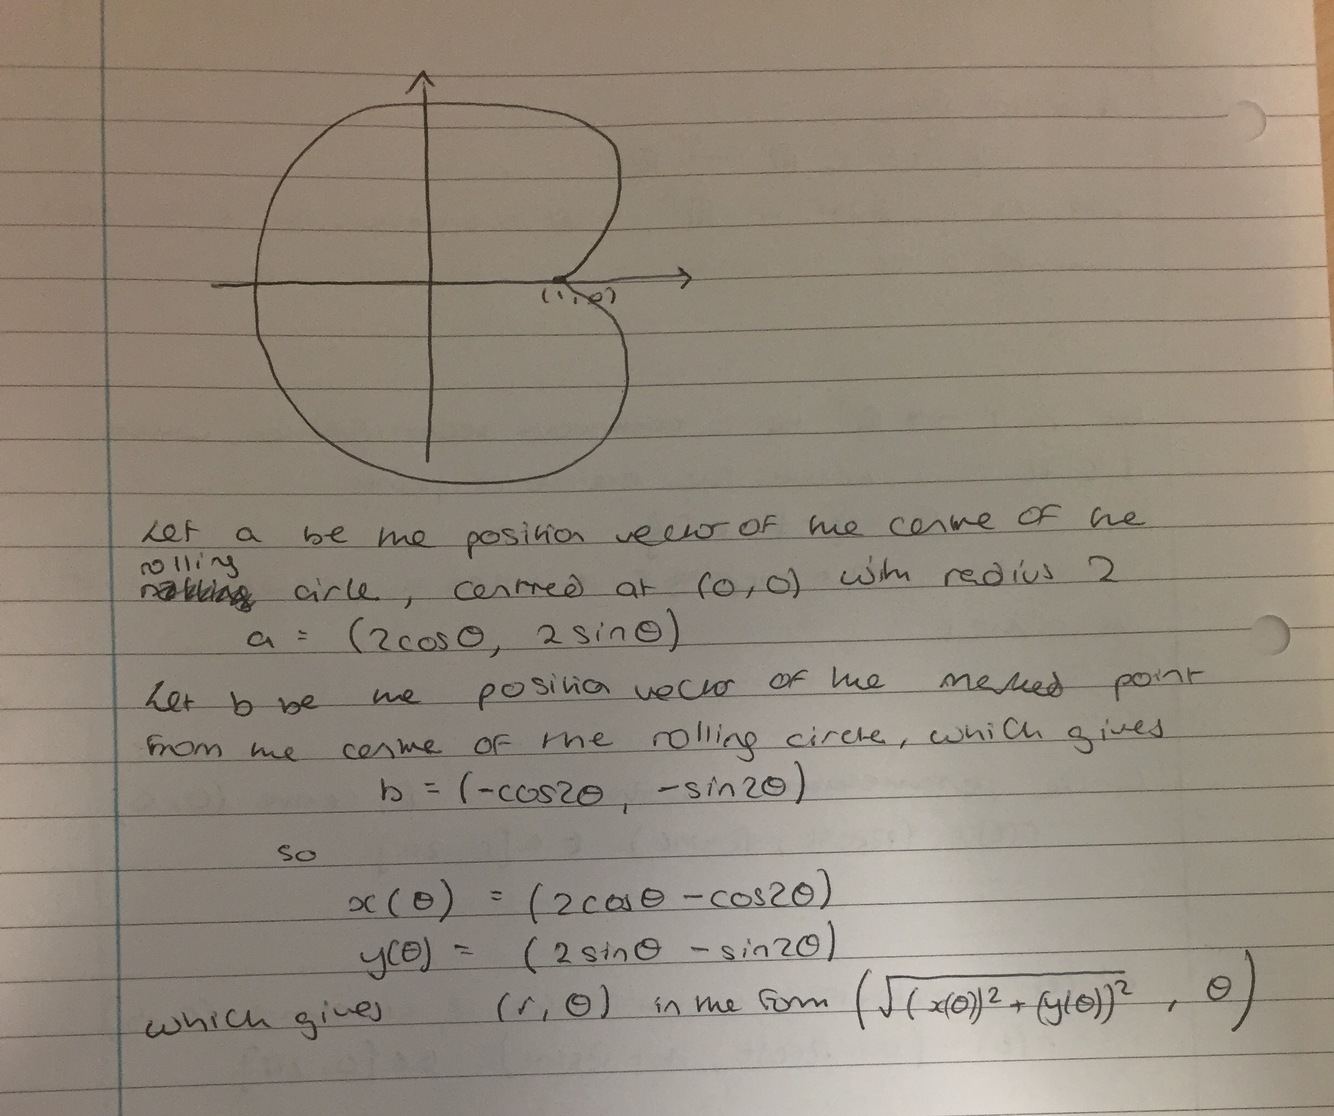 (1,0)
Let a be the position vector of the centre of the
rolling
circle, centred at (0,0) with radius 2
a = (2cosθ, 2sinθ)
Let b be the position vector of the marked point
from the centre of the rolling circle, which gives
b = (-cos2θ, -sin2θ)
so
x(θ) = (2cosθ - cos2θ)
y(θ) = (2sinθ - sin2θ)
which gives (r, θ) in the form (√(x(θ))² + (y(θ))², θ)